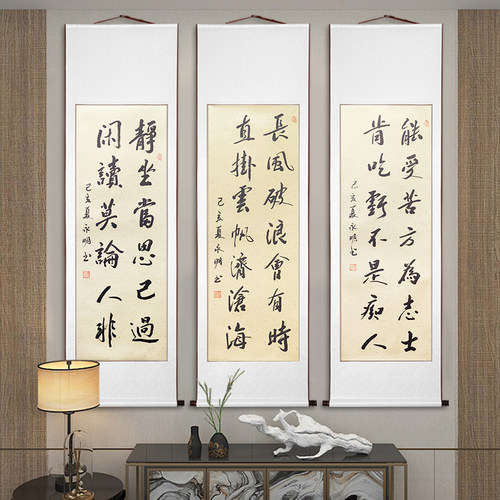 靜坐當思己過
閑讀莫論人非
己亥夏永明书
長風破浪會有時
直掛雲帆濟滄海
己亥夏永明书
能受苦方為志士
肯吃虧不是痴人
己亥夏永明书